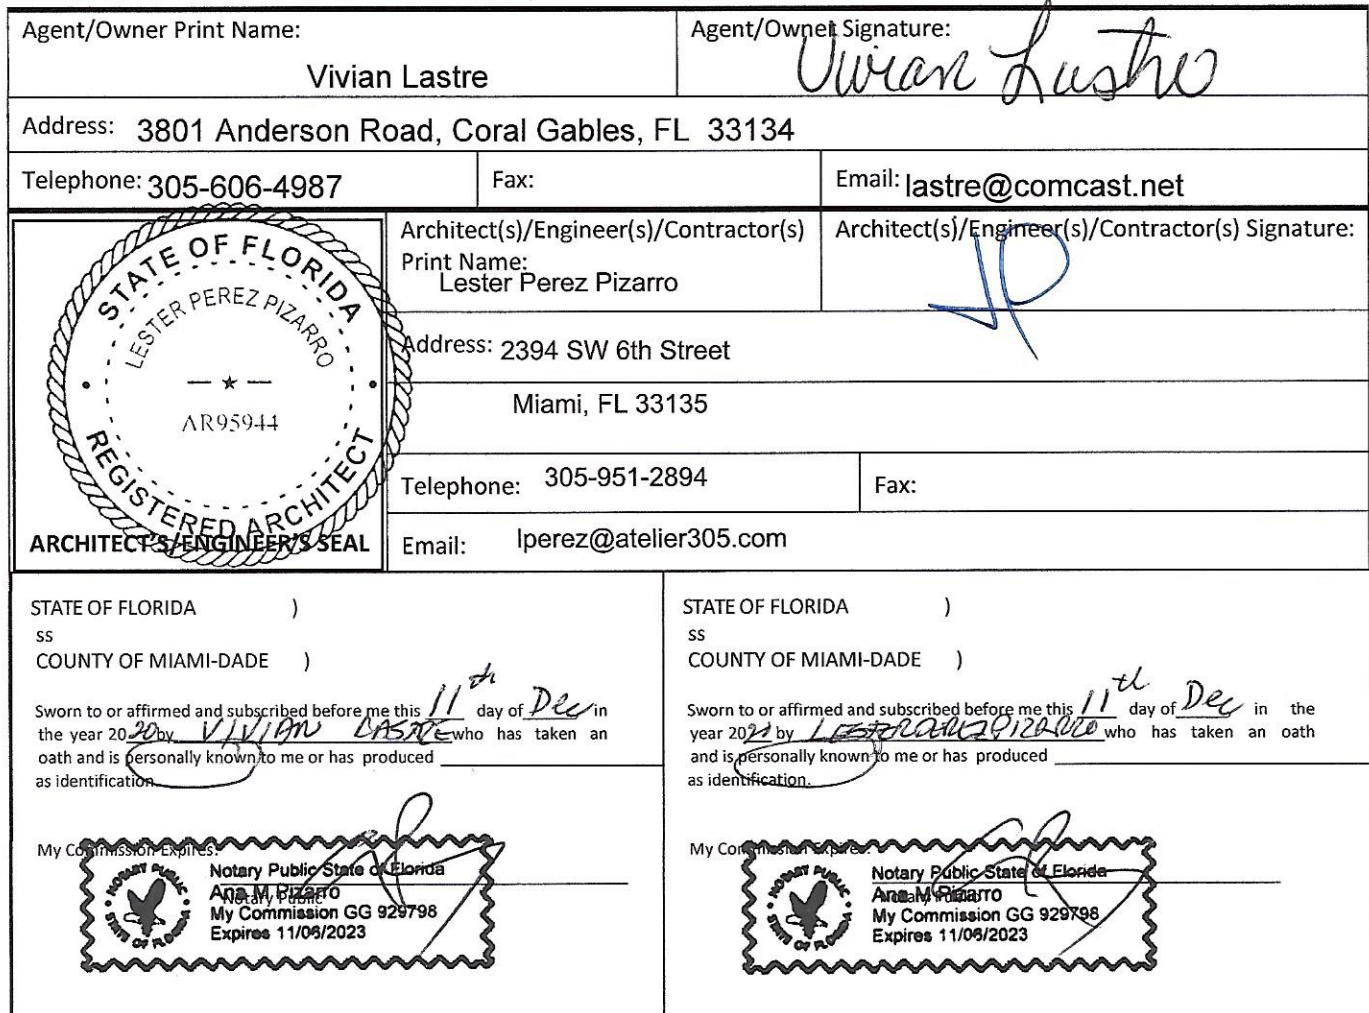 Agent/Owner Print Name:
Vivian Lastre
Agent/Owner Signature:
Vivian Lastre
Address: 3801 Anderson Road, Coral Gables, FL 33134
Telephone: 305-606-4987
Fax:
Email: lastre@comcast.net
STATE OF FLORIDA
LESTER PEREZ PIZARRO
AR95944
REGISTERED ARCHITECT
ARCHITECT'S/ENGINEER'S SEAL
Architect(s)/Engineer(s)/Contractor(s)
Print Name:
Lester Perez Pizarro
Architect(s)/Engineer(s)/Contractor(s) Signature:
Address: 2394 SW 6th Street
Miami, FL 33135
Telephone: 305-951-2894
Fax:
Email: lperez@atelier305.com
STATE OF FLORIDA )
ss
COUNTY OF MIAMI-DADE )
Sworn to or affirmed and subscribed before me this 11th day of Dec in
the year 2020 by VIVIAN LASTRE who has taken an
oath and is personally known to me or has produced
as identification.
My Commission Expires:
Notary Public
NOTARY PUBLIC
STATE OF FLORIDA
Notary Public State of Florida
Ana M Pizarro
My Commission GG 929798
Expires 11/06/2023
STATE OF FLORIDA )
ss
COUNTY OF MIAMI-DADE )
Sworn to or affirmed and subscribed before me this 11th day of Dec in the
year 20 by LESTER PEREZ PIZARRO who has taken an oath
and is personally known to me or has produced
as identification.
My Commission Expires:
Notary Public
NOTARY PUBLIC
STATE OF FLORIDA
Notary Public State of Florida
Ana M Pizarro
My Commission GG 929798
Expires 11/06/2023